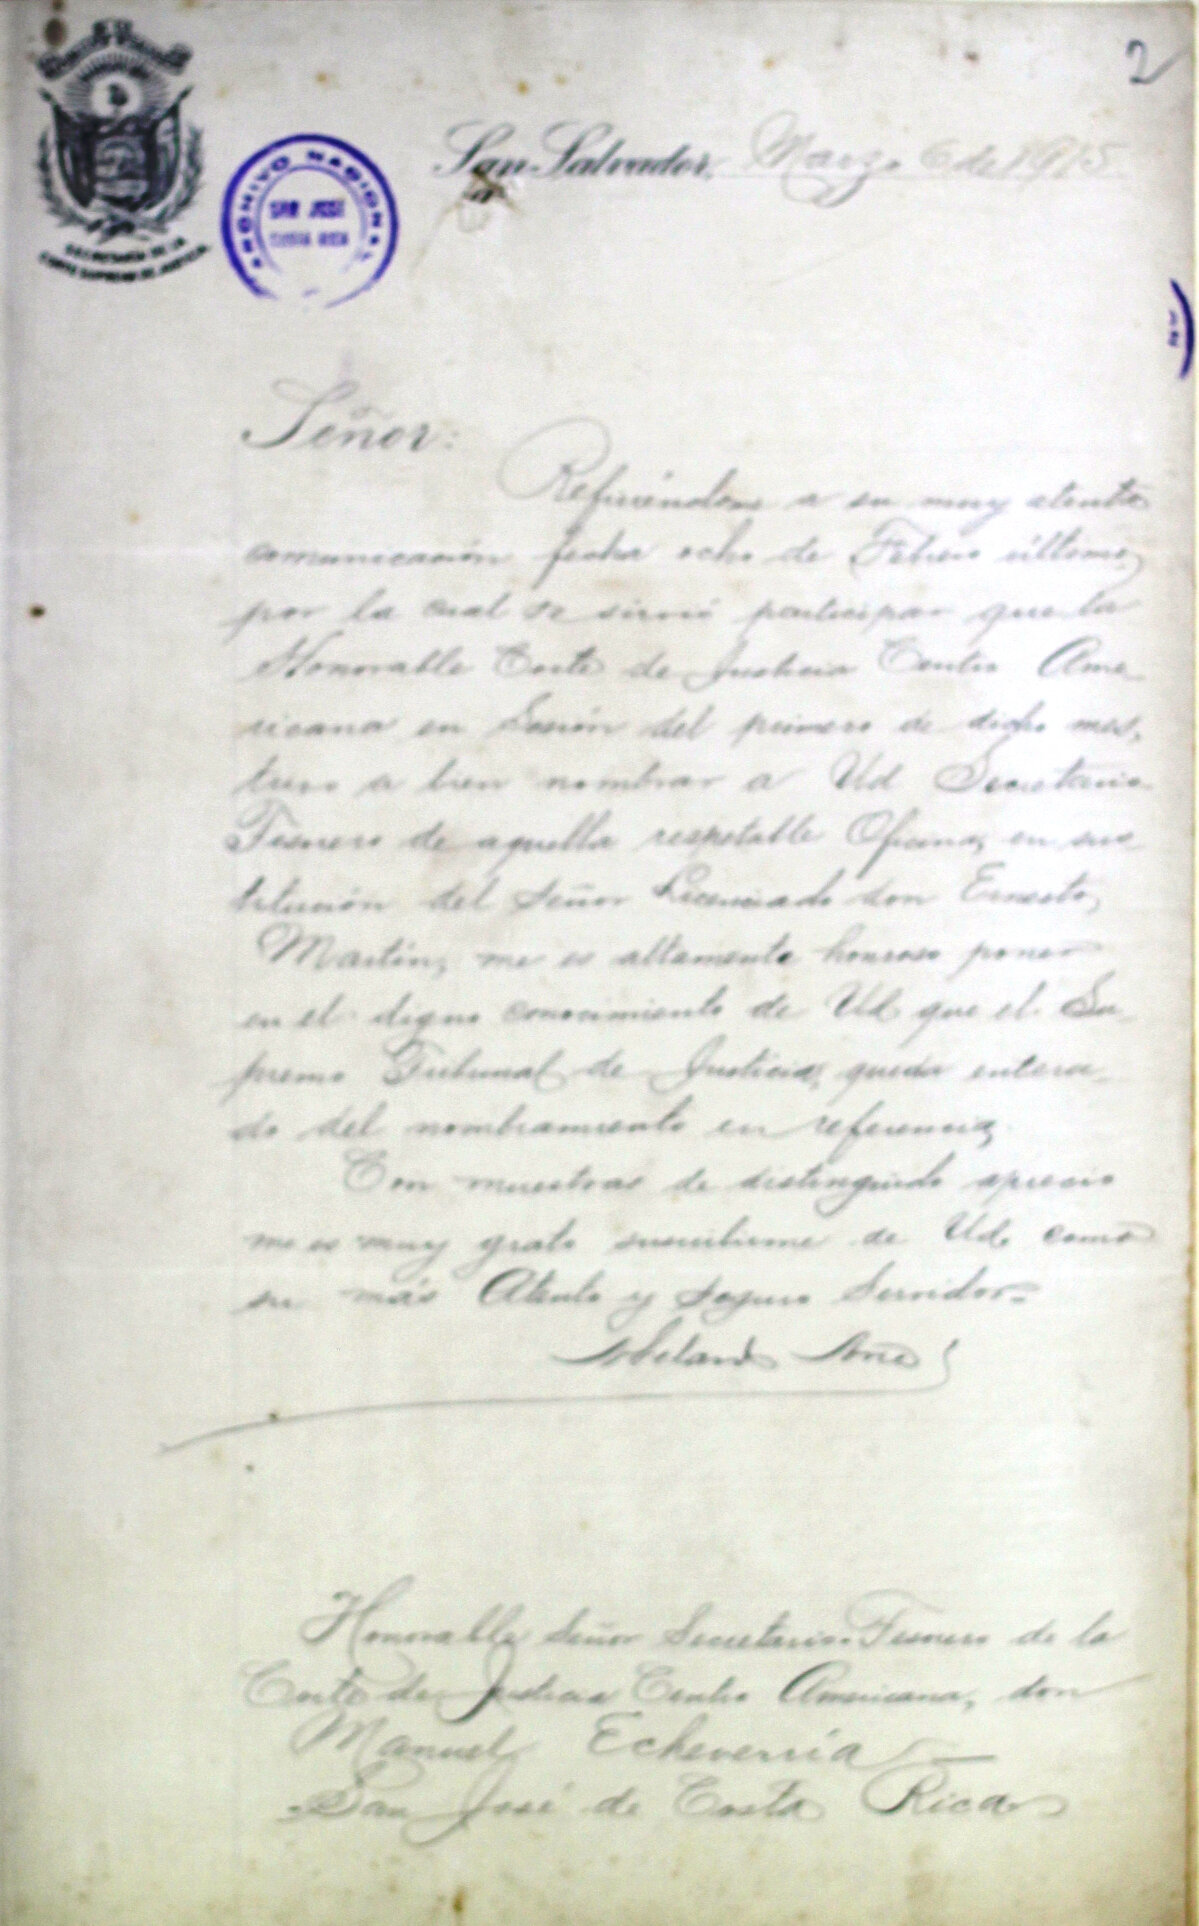 2
SECRETARIA DE LA
CORTE SUPREMA DE JUSTICIA.
ARCHIVO NACIONAL
SAN JOSE
COSTA RICA
San Salvador, Marzo 6 de 1915
Señor:
Refiriéndome a su muy atenta
comunicación fecha ocho de Febrero último,
por la cual se sirvió participar que la
Honorable Corte de Justicia Centro Ame-
ricana en Sesión del primero de dicho mes,
tuvo a bien nombrar a Ud Secretario
Tesorero de aquella respetable Oficina, en sus-
titución del Señor Licenciado don Ernesto
Martín, me es altamente honroso poner
en el digno conocimiento de Ud. que el Su-
premo Tribunal de Justicia, queda entera-
do del nombramiento en referencia.
Con muestras de distinguido aprecio
me es muy grato suscribirme de Ud. como
su más Atento y Seguro Servidor.=
Honorable Señor Secretario Tesorero de la
Corte de Justicia Centro Americana, don
Manuel Echeverría
San José de Costa Rica